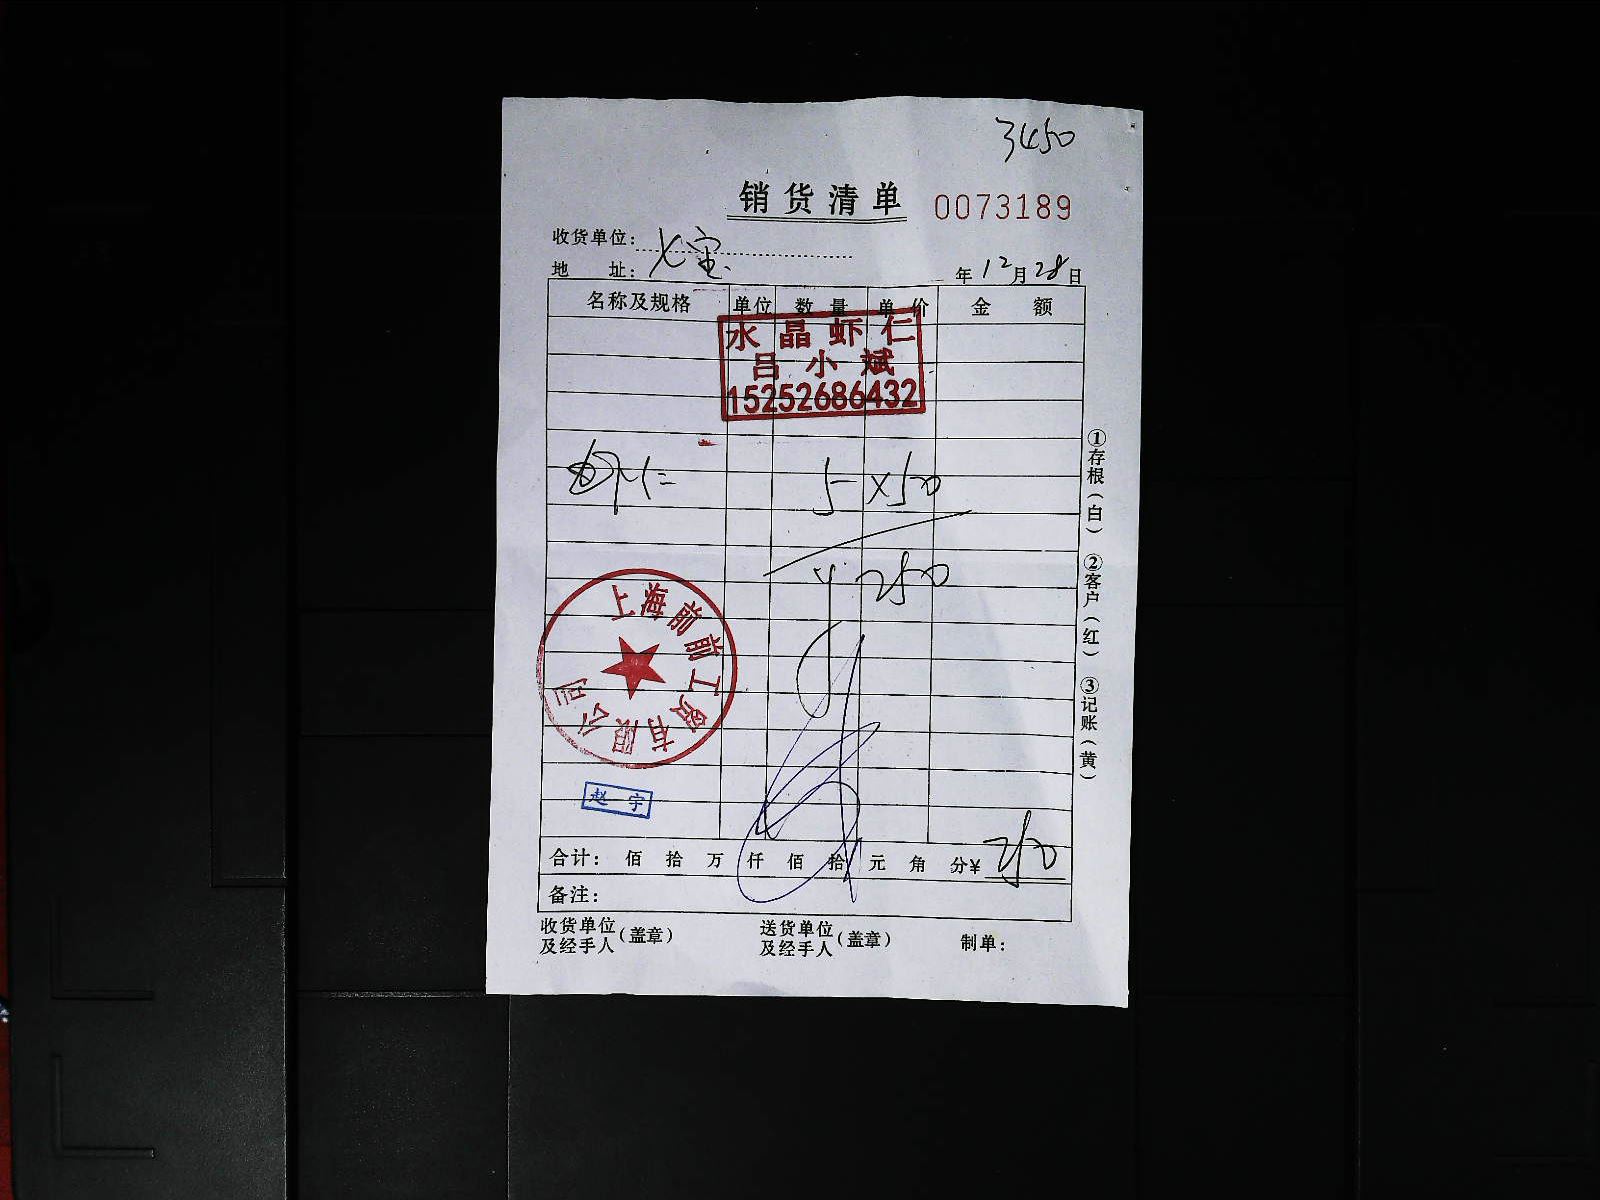 3450
销货清单 0073189
收货单位: 七宝
地 址:
年 12 月 28 日
名称及规格 单位 数量 单价 金额
水晶虾仁
吕小斌
15252686432
虾仁 5 × 50
¥ 250
上海前前工贸有限公司
赵宇
合计: 佰 拾 万 仟 佰 拾 元 角 分 ¥ 250
备注:
收货单位及经手人(盖章) 送货单位及经手人(盖章) 制单:
①存根(白) ②客户(红) ③记账(黄)